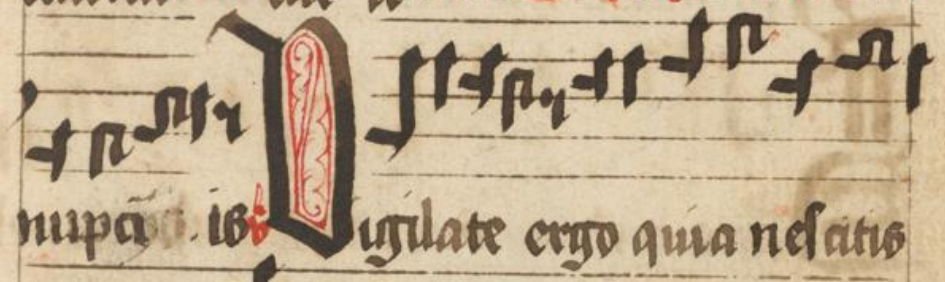 nupcijs is ℣ Vigilate ergo quia nescitis